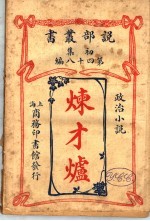 説部叢書
初集
第四十八編
政治小説
煉才爐
上海商務印書館發行